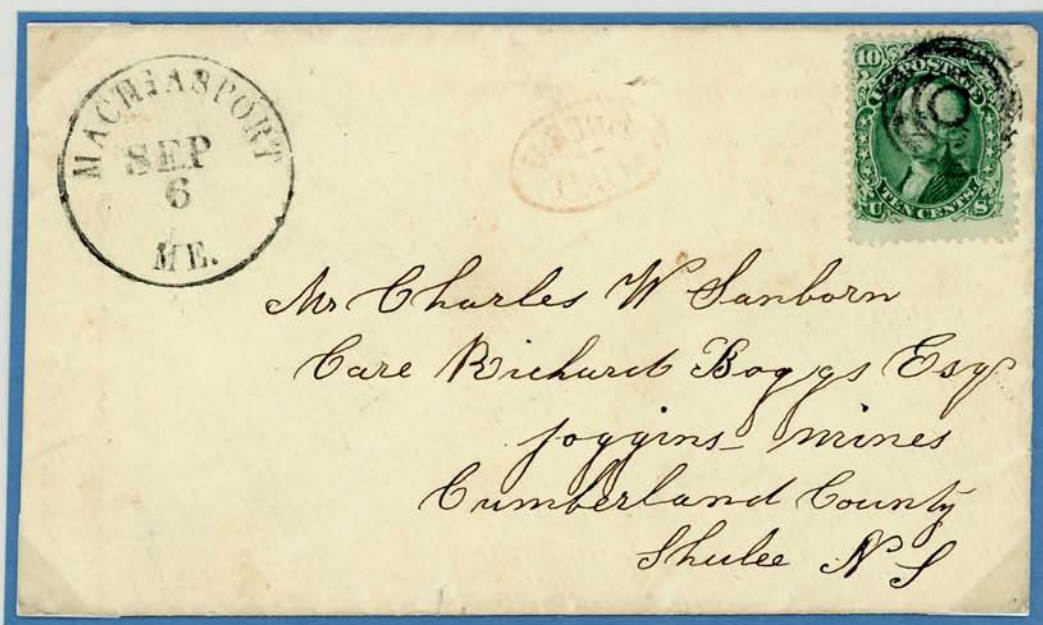 MACHIASPORT
SEP
6
ME.
10
U.S. POSTAGE
TEN CENTS.
U S
Mr Charles W Sanborn
Care Richard Boggs Esqr
Joggins mines
Cumberland County
Shulee N S